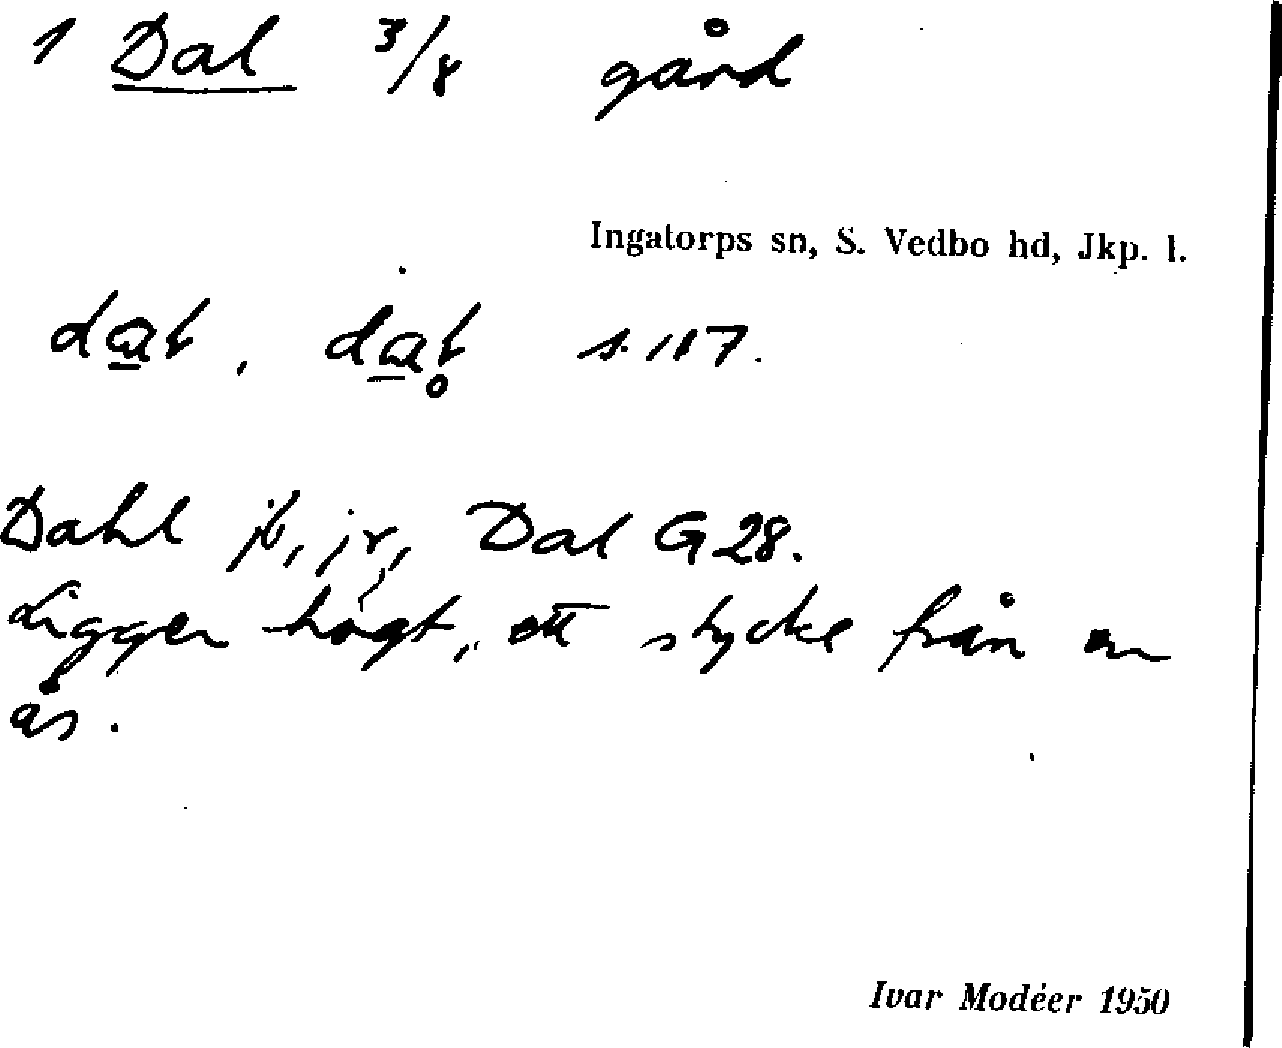 1 Dal 3/8 gård
Ingatorps sn, S. Vedbo hd, Jkp. l.
dɑɫ, dɑɫ̥ s. 117.
Dahl jb, jr, Dal G 28.
Ligger högt, ett stycke från en
ås.
Ivar Modéer 1950